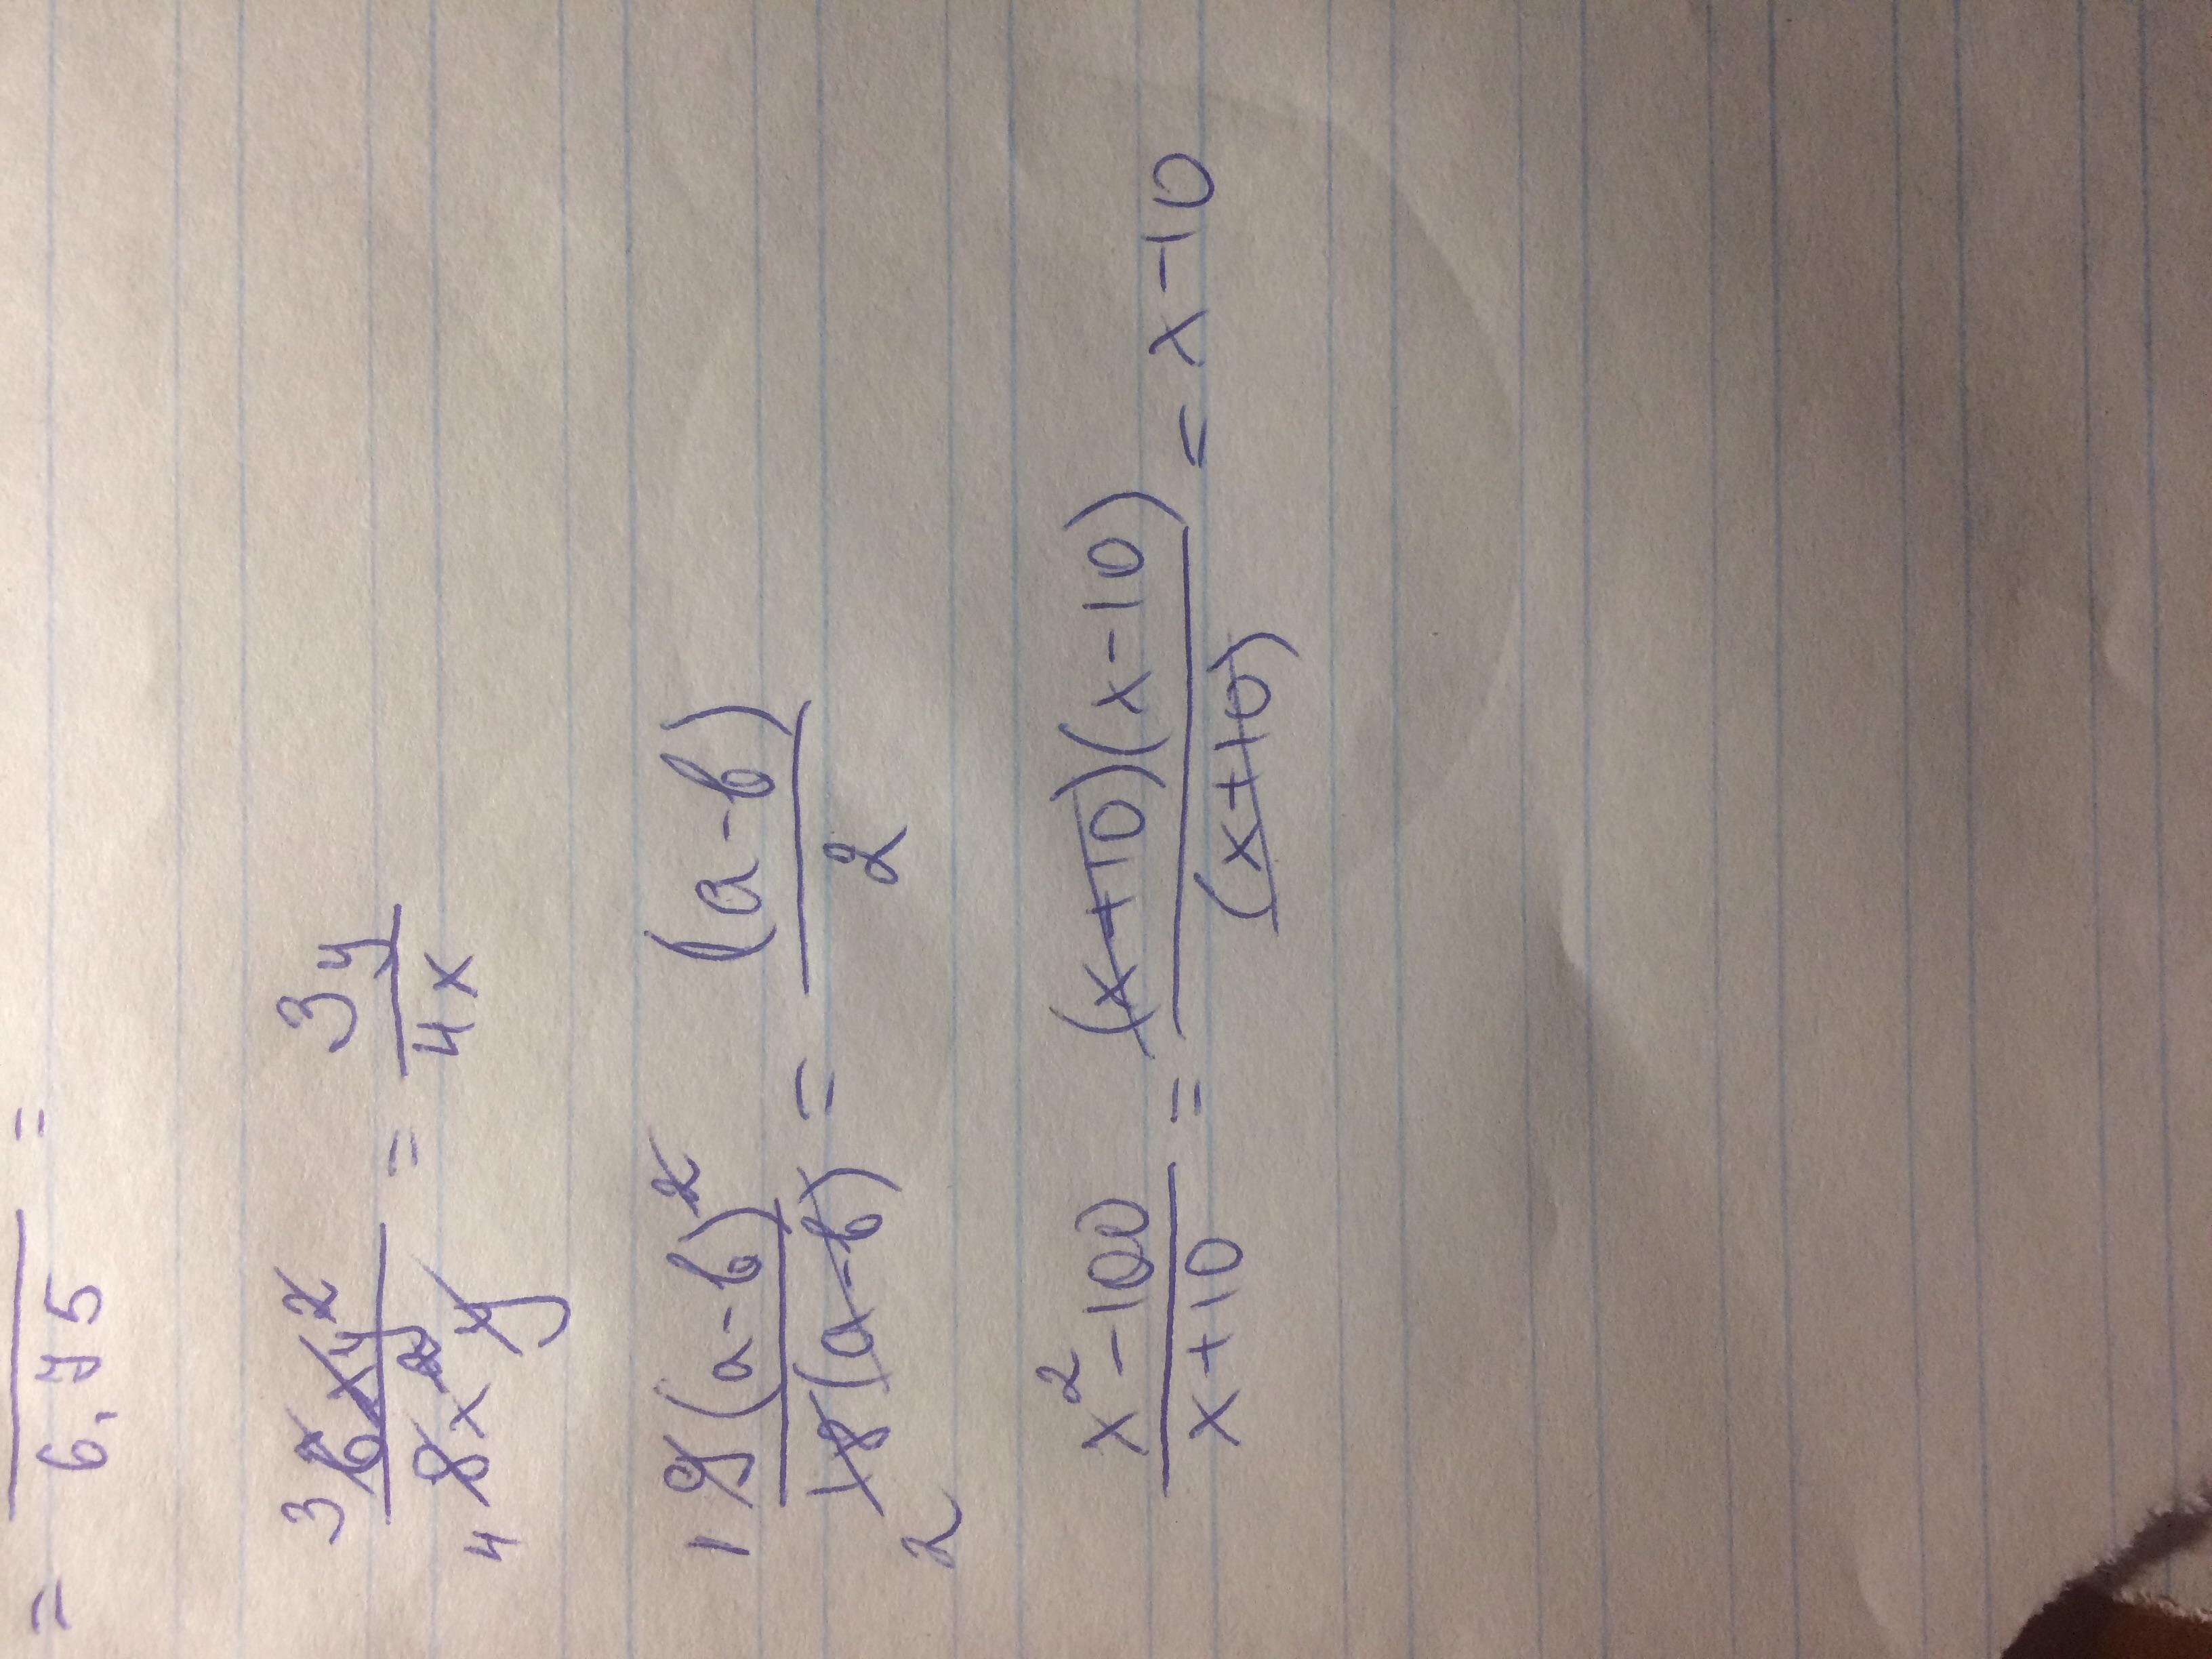 = ――― =
6,75
3 6xy² / 4 8x²y = 3y / 4x
1 9(a-b)² / 2 18(a-b) = (a-b) / 2
x²-100 / x+10 = (x+10)(x-10) / (x+10) = x-10